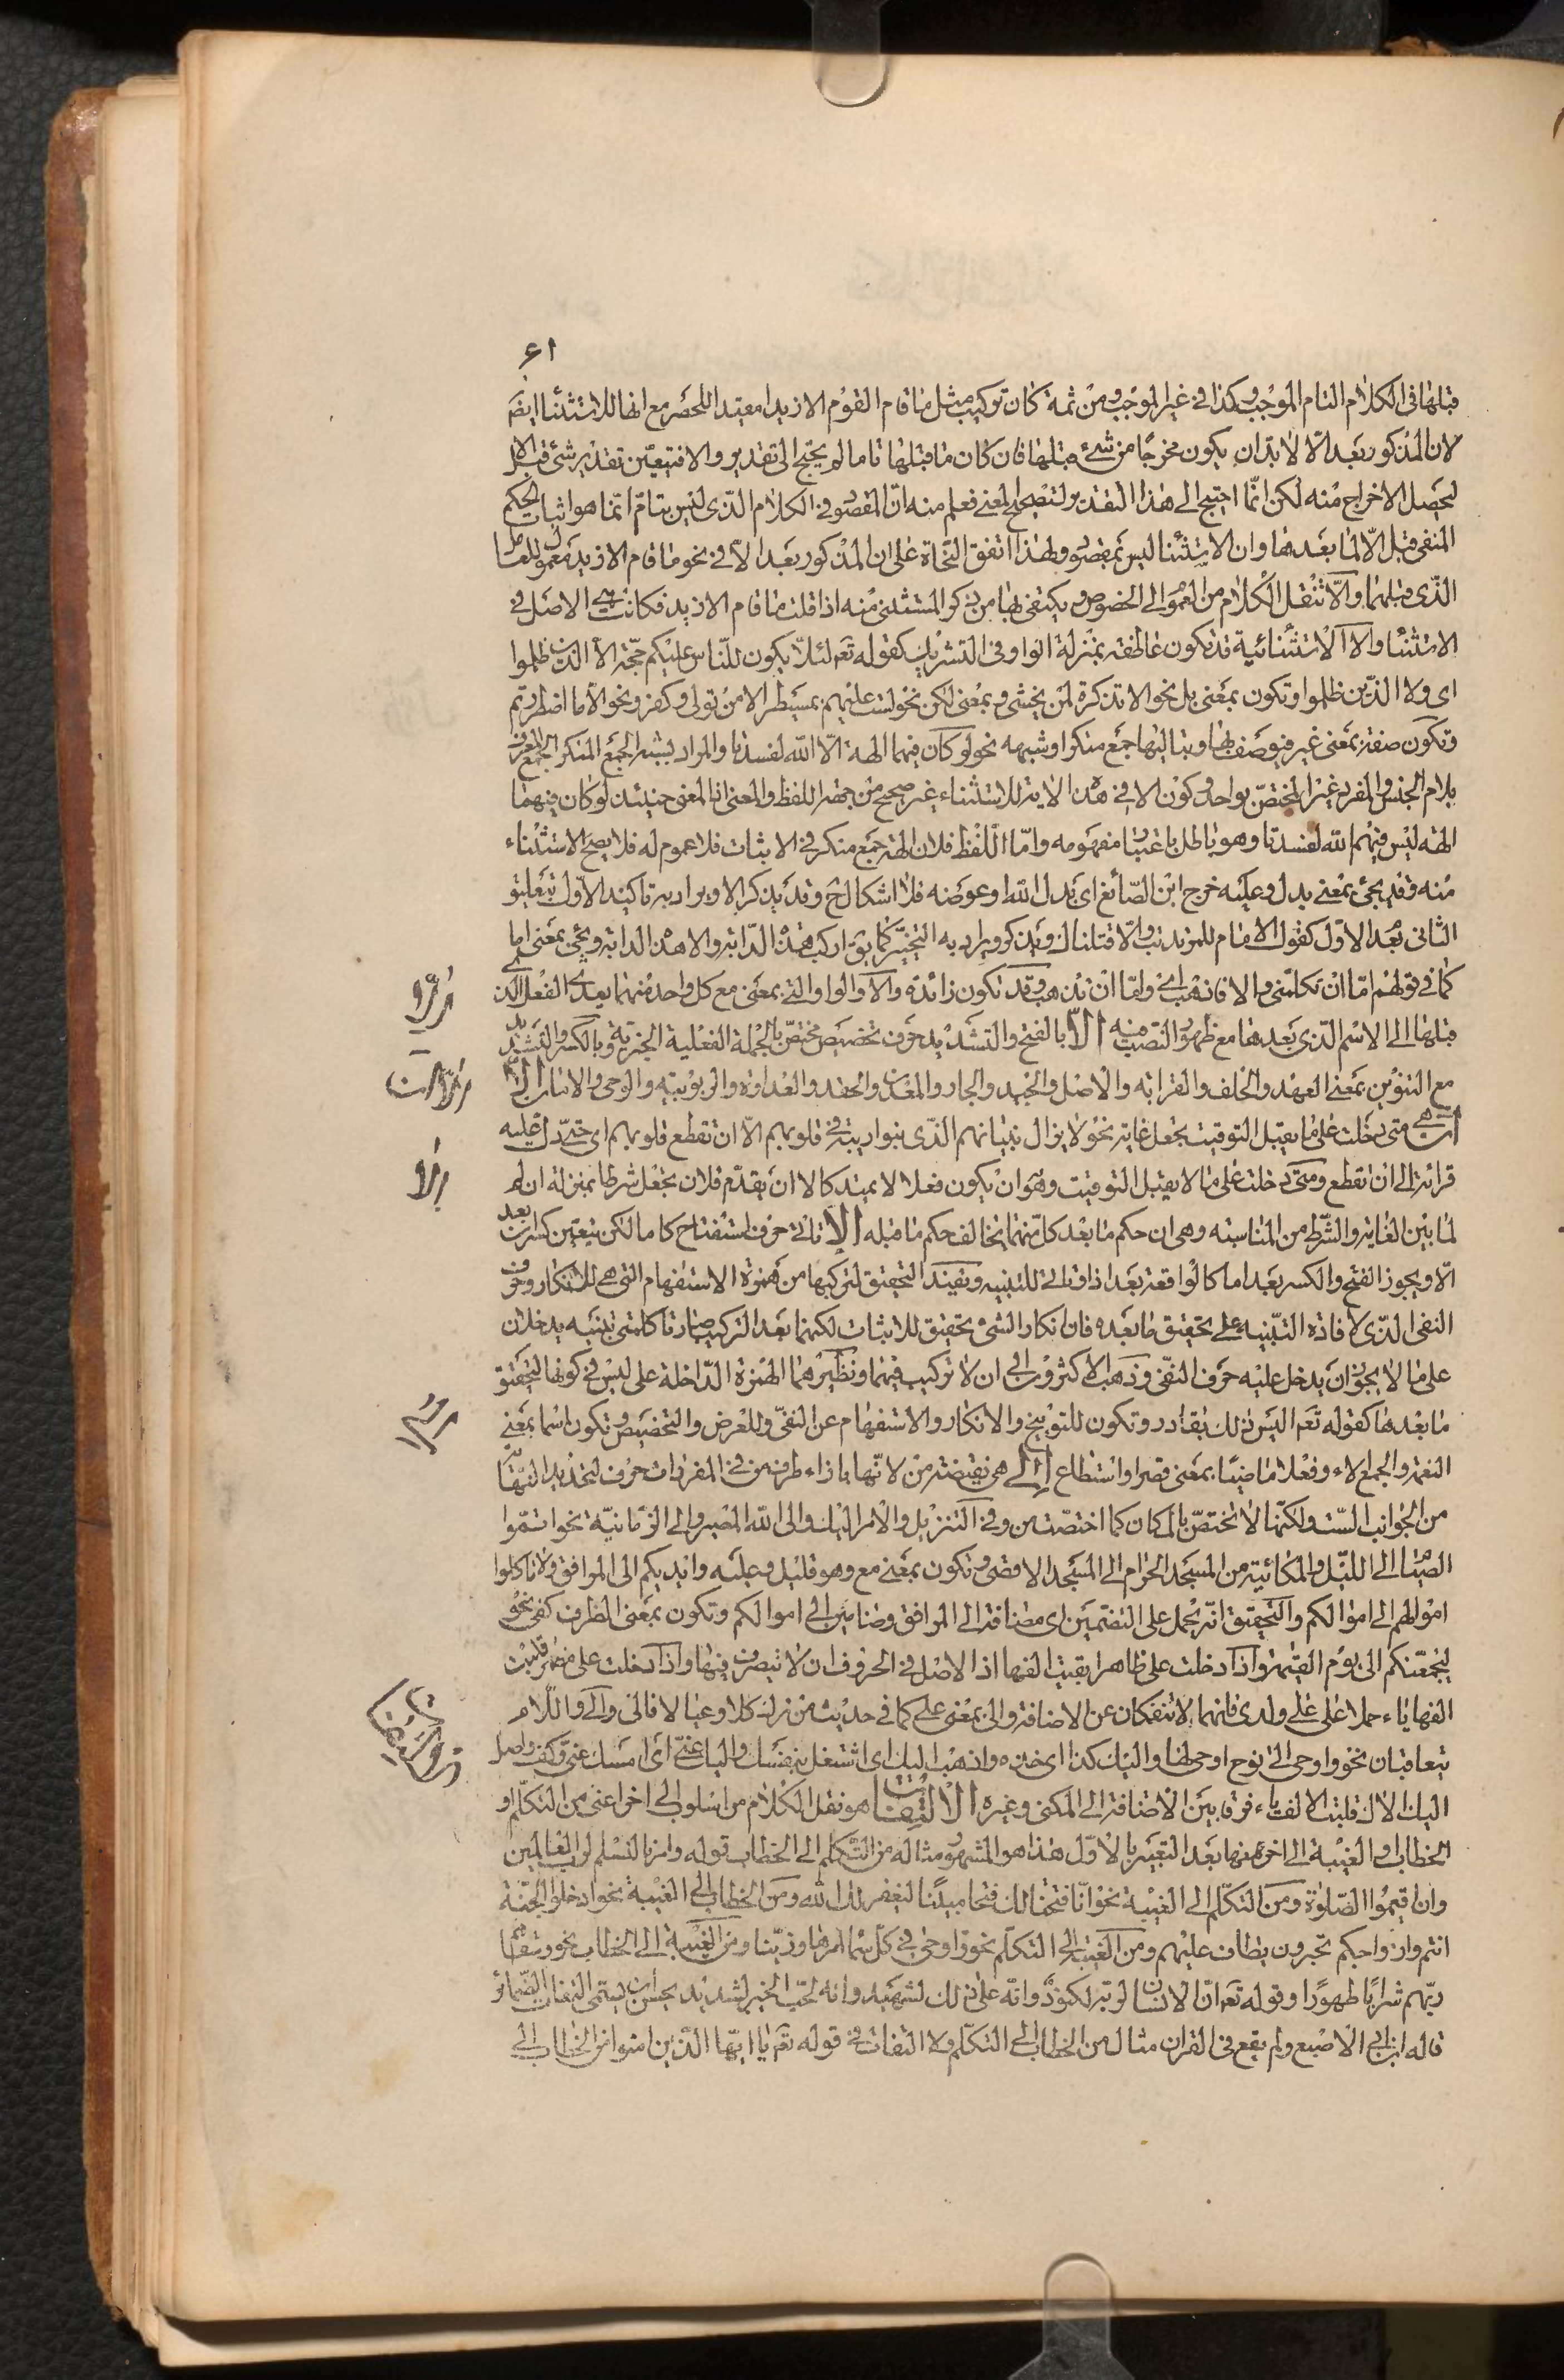 ٦١
قبلها فى الكلام التام الموجب وكذا فى غير الموجب ومن ثمة كان تركيب مثل ما قام القوم الا زيدا مفيدا للحصر مع انها للاستثناء ايضم
لان المذكور بعد الا لا بد ان يكون مخرجا من شئ قبلها فان كان ما قبلها تاما لم يحتج الى تقدير والا فتيعين تقدير شئ قبل الا
ليحصل الاخراج منه لكن انما احتيج الى هذا التقدير لتصحيح المعنى فعلم منه ان المقصود فى الكلام الذى ليس بتام انما هو اثبات الحكم
المنفى قبل الا لما بعدها وان الاستثناء ليس بمقصود ولهذا اتفق النحاة على ان المذكور بعد الا فى نحو ما قام الا زيد معمول للعامل
الذى قبلها والا تنقل الكلام من العموم الى الخصوص ويكتفى بها من ذكر المستثنى منه اذا قلت ما قام الا زيد فكانت هى الاصل فى
الاستثناء والا الاستثنائية قد تكون عاطفة بمنزلة الواو فى التشريك كقوله تعم لئلا يكون للناس عليكم حجة الا الذين ظلموا
اى ولا الذين ظلموا وتكون بمعنى بل نحو الا تذكرة لمن يخشى وبمعنى لكن نحو لست عليهم بمسيطر الا من تولى وكفر ونحو الا ما اضطررتم
وتكون صفة بمعنى غير فيوصف بها وبتاليها جمع منكر او شبهه نحو لو كان فيهما الهة الا الله لفسدتا والمراد بشبه الجمع المنكر الجمع المعرف
بلام الجنس والمفرد غير المختص بواحد وكون الا فى هذه الاية للاستثناء غير صحيح من جهة اللفظ والمعنى اذ المعنى حينئذ لو كان فيهما
الهة ليس فيهم الله لفسدتا وهو باطل باعتبار مفهومه واما اللفظ فلان الهة جمع منكر فى الاثبات فلا عموم له فلا يصح الاستثناء
منه وقد يجئ بمعنى بدل وعليه خرج ابن الصائغ اى بدل الله او عوضه فلا اشكال ح وقد يذكر الا ويراد به تاكيد الاول بتعليق
الثانى بعد الاول كقول الامام للمرتد تب والا قتلناك ويذكر ويراد به التخيير كما يق اركب هذه الدابة والا هذه الدابة ويجئ بمعنى اما
كما فى قولهم اما ان تكلمنى والا فاذهب اى واما ان تذهب وقد تكون زائدة والا والواو التى بمعنى مع كل واحد منهما يعدى الفعل الذى
قبلها الى الاسم الذى بعدها مع ظهور النصب فيه الا بالفتح والتشديد حرف تحضيض مختص بالجملة الفعلية الخبرية وبالكسر والتشديد
مع التنوين بمعنى العهد والحلف والقرابه والاصل والجيد والجار والمعدن والحقد والعداوة والربوبيه والوحى والامان الا
ان هى متى دخلت على ما يقبل التوقيت يجعل غاية نحو لا يزال بنيانهم الذى بنوا ريبة فى قلوبهم الا ان تقطع قلوبهم اى حتى دل عليه
قرائة الى ان تقطع ومتى دخلت على ما لا يقبل التوقيت وهو ان يكون فعلا لا يمتد كالا ان يقدم فلان يجعل شرطا بمنزلة ان لم
لما بين الغاية والشرط من المناسبه وهى ان حكم ما بعد كل منهما يخالف حكم ما قبله الا تاتى حرف استفتاح كاما لكن يتعين كسر ان بعد
الا ويجوز الفتح والكسر بعد اما كالواقعة بعد اذا وتاتى للتنبيه وتفيد التحقيق لتركيبها من همزة الاستفهام التى هى للانكار وحرف
النفى الذى لافادة التنبيه على تحقيق ما بعده فان انكار الشئ تحقيق للاثبات لكنهما بعد التركيب صارتا كلمتى تنبيه يدخلان
على ما لا يجوز ان يدخل عليه حرف النفى وذهب الاكثرون الى ان لا تركيب فيهما ونظيرهما الهمزة الداخلة على ليس فى كونها لتحقيق
ما بعدها كقوله تعم اليس ذلك بقادر وتكون للتوبيخ والانكار والاستفهام عن النفى وللعرض والتحضيض وتكون اسما بمعنى
النعمة والجمع الاء وفعلا ماضيا بمعنى قصر او استطاع الى هى نقيضة من لانها بازاء طرف من فى المفردات حرف لتحديد النهاية
من الجوانب الست ولكنها لا تختص بالمكان كما اختصت من وفى التنزيل والامر اليك والى الله المصير والى الزمانية نحو اتموا
الصيام الى الليل والمكانية من المسجد الحرام الى المسجد الاقصى وتكون بمعنى مع وهو قليل وعليه وايديكم الى المرافق ولا تاكلوا
اموالهم الى اموالكم والتحقيق انه يحمل على التضمين اى مضافة الى المرافق وضامين الى اموالكم وتكون بمعنى الظرف كفى نحو
ليجمعنكم الى يوم القيمة واذا دخلت على ظاهر ابقيت الفها اذ الاصل فى الحروف ان لا يتصرف فيها واذا دخلت على مضمر قلبت
الفها ياء حملا على على ولدى فانهما لا تنفكان عن الاضافة والى بمعنى على كما فى حديث من ترك كلا وعيالا فالى والى واللام
يتعاقبان نحو واوحى الى نوح اوحى لها واليك كذا اى خذه واذهب اليك اى اشتغل بنفسك واليك عنى اى امسك عنى وكف واصل
اليك الاك قلبت الالف ياء فرقا بين الاضافة الى المكنى وغيره الالتفات هو نقل الكلام من اسلوب الى اخر اعنى من التكلم او
الخطاب او الغيبة الى اخر منها بعد التعبير بالاول هذا هو المشهور مثاله من التكلم الى الخطاب قوله وامرنا لنسلم لرب العالمين
وان اقيموا الصلوة ومن التكلم الى الغيبة نحو انا فتحنا لك فتحا مبينا ليغفر لك الله ومن الخطاب الى الغيبة نحو ادخلوا الجنة
انتم وازواجكم تحبرون يطاف عليهم ومن الغيبة الى التكلم نحو واوحى فى كل سماء امرها وزينا ومن الغيبة الى الخطاب نحو وسقاهم
ربهم شرابا طهورا وقوله تعم ان الانسان لربه لكنود وانه على ذلك لشهيد وانه لحب الخير لشديد يحسن ان يسمى التفات الضمائر
قاله ابن ابى الاصبع ولم يقع فى القران مثال من الخطاب الى التكلم ولا التفات فى قوله تعم يا ايها الذين امنوا من الخطاب الى